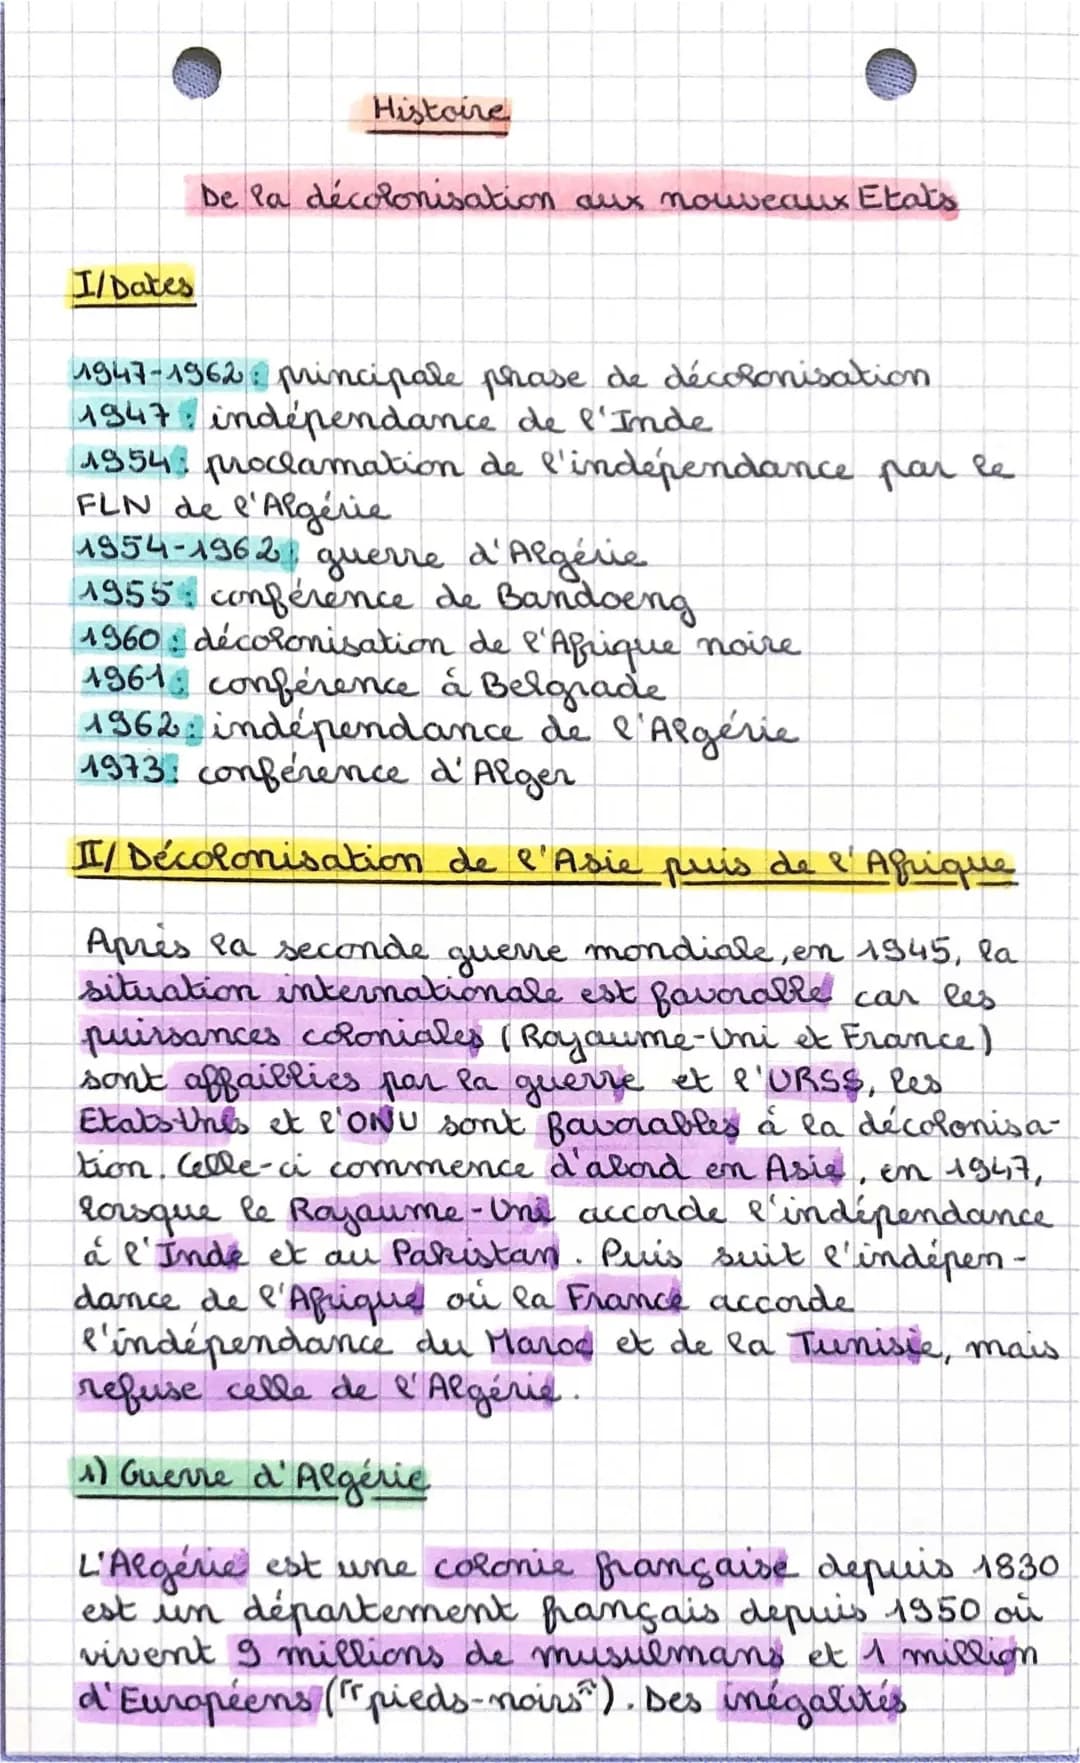 Histoire
De la décolonisation aux nouveaux Etats
I/Dates
1947-1962: principale phase de décolonisation
1947: indépendance de l'Inde
1954: proclamation de l'indépendance par le
FLN de l'Algérie
1954-1962: guerre d'Algérie
1955: conférence de Bandoeng
1960: décolonisation de l'Afrique noire
1961: conférence à Belgrade
1962: indépendance de l'Algérie
1973: conférence d'Alger
II/ Décolonisation de l'Asie puis de l'Afrique
Après la seconde guerre mondiale, en 1945, la
situation internationale est favorable car les
puissances coloniales (Royaume-Uni et France)
sont affaiblies par la guerre et l'URSS, les
Etats-Unis et l'ONU sont favorables à la décolonisa-
tion. Celle-ci commence d'abord en Asie, en 1947,
lorsque le Royaume-Uni accorde l'indépendance
à l'Inde et au Pakistan. Puis suit l'indépen-
dance de l'Afrique où la France accorde
l'indépendance du Maroc et de la Tunisie, mais
refuse celle de l'Algérie.
1) Guerre d'Algérie
L'Algérie est une colonie française depuis 1830
est un département français depuis 1950 où
vivent 9 millions de musulmans et 1 million
d'Européens ("pieds-noirs"). Des inégalités